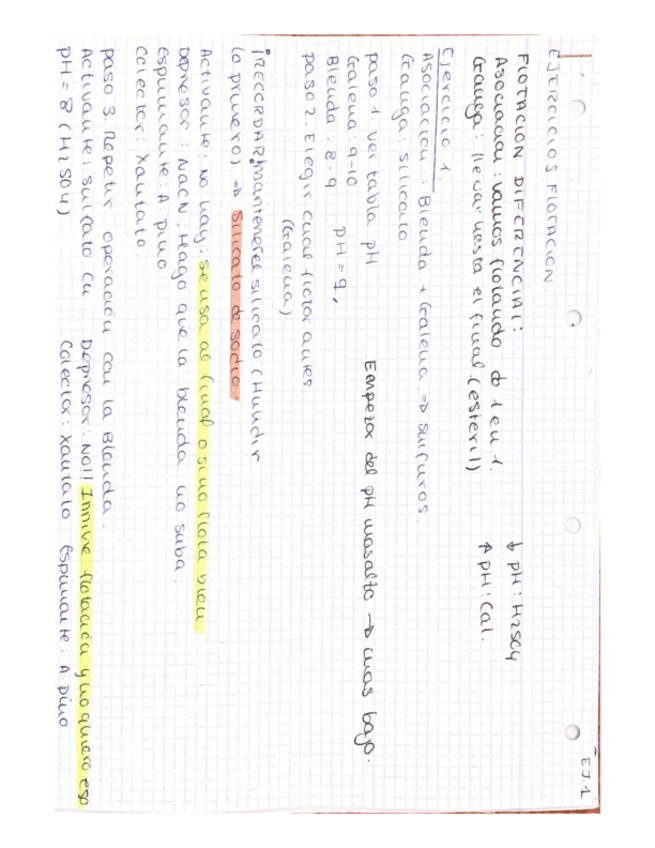 EJ.1
EJERCICIOS FLOTACION
FLOTACION DIFERENCIAL:
Asociacion: vamos flotando de 1 en 1. ↓ pH: H2SO4
Ganga: llevar hasta el final. (esteril) ↑ pH: Cal.
Ejercicio 1.
Asociacion: Blenda + Galena => sulfuros.
Ganga: silicato
paso 1 ver tabla pH Empezar del pH mas alto → mas bajo.
Galena: 9-10
Blenda: 8-9 pH=9,
paso 2. Elegir cual flotar antes.
(Galena)
¡RECORDAR! mantener el silicato (Hundir
lo primero) => Silicato de sodio.
Activante: No hay; se usa al final o si no flota bien
Depresor: NaCN; Hago que la blenda no suba.
Espumante: A pino
Colector: Xantato.
paso 3. Repetir operación con la Blenda.
Activante: sulfato Cu Depresor: No!! Inhibe flotación y no quiero eso
pH=8 (H2SO4) Colector: Xantato Espumante: A. pino